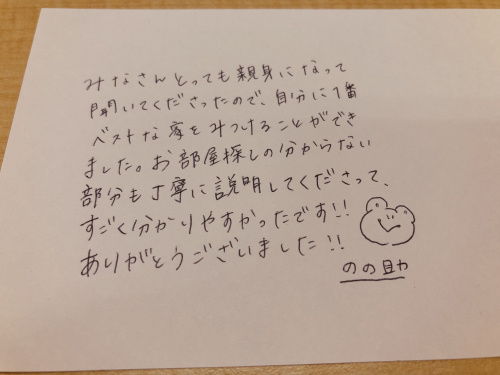 みなさんとっても親身になって
聞いてくださったので、自分に1番
ベストな家をみつけることができ
ました。お部屋探しの分からない
部分も丁寧に説明してくださって、
すごく分かりやすかったです!!
ありがとうございました!!
のの助